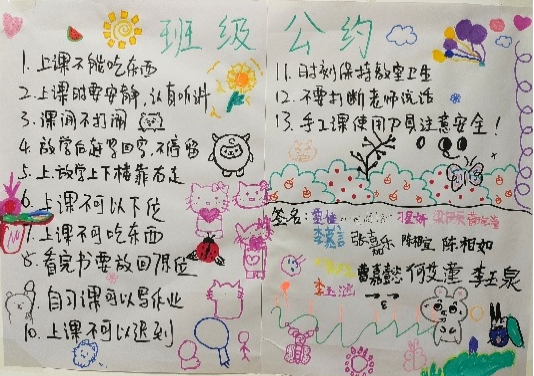 班级公约
1. 上课不能吃东西
2. 上课时要安静,认真听讲
3. 课间不打闹
4. 放学后赶紧回家,不停留
5. 上放学上下楼靠右走
6. 上课不可以下位
7. 上课不可吃东西
8. 看完书要放回原位
9. 自习课可以写作业
10. 上课不可以迟到
11. 时刻保持教室卫生
12. 不要打断老师说话
13. 手工课使用刀具注意安全!
签名:
李美言 张嘉乐 陈 陈相如
曹嘉懿 何艾潼 李玉泉